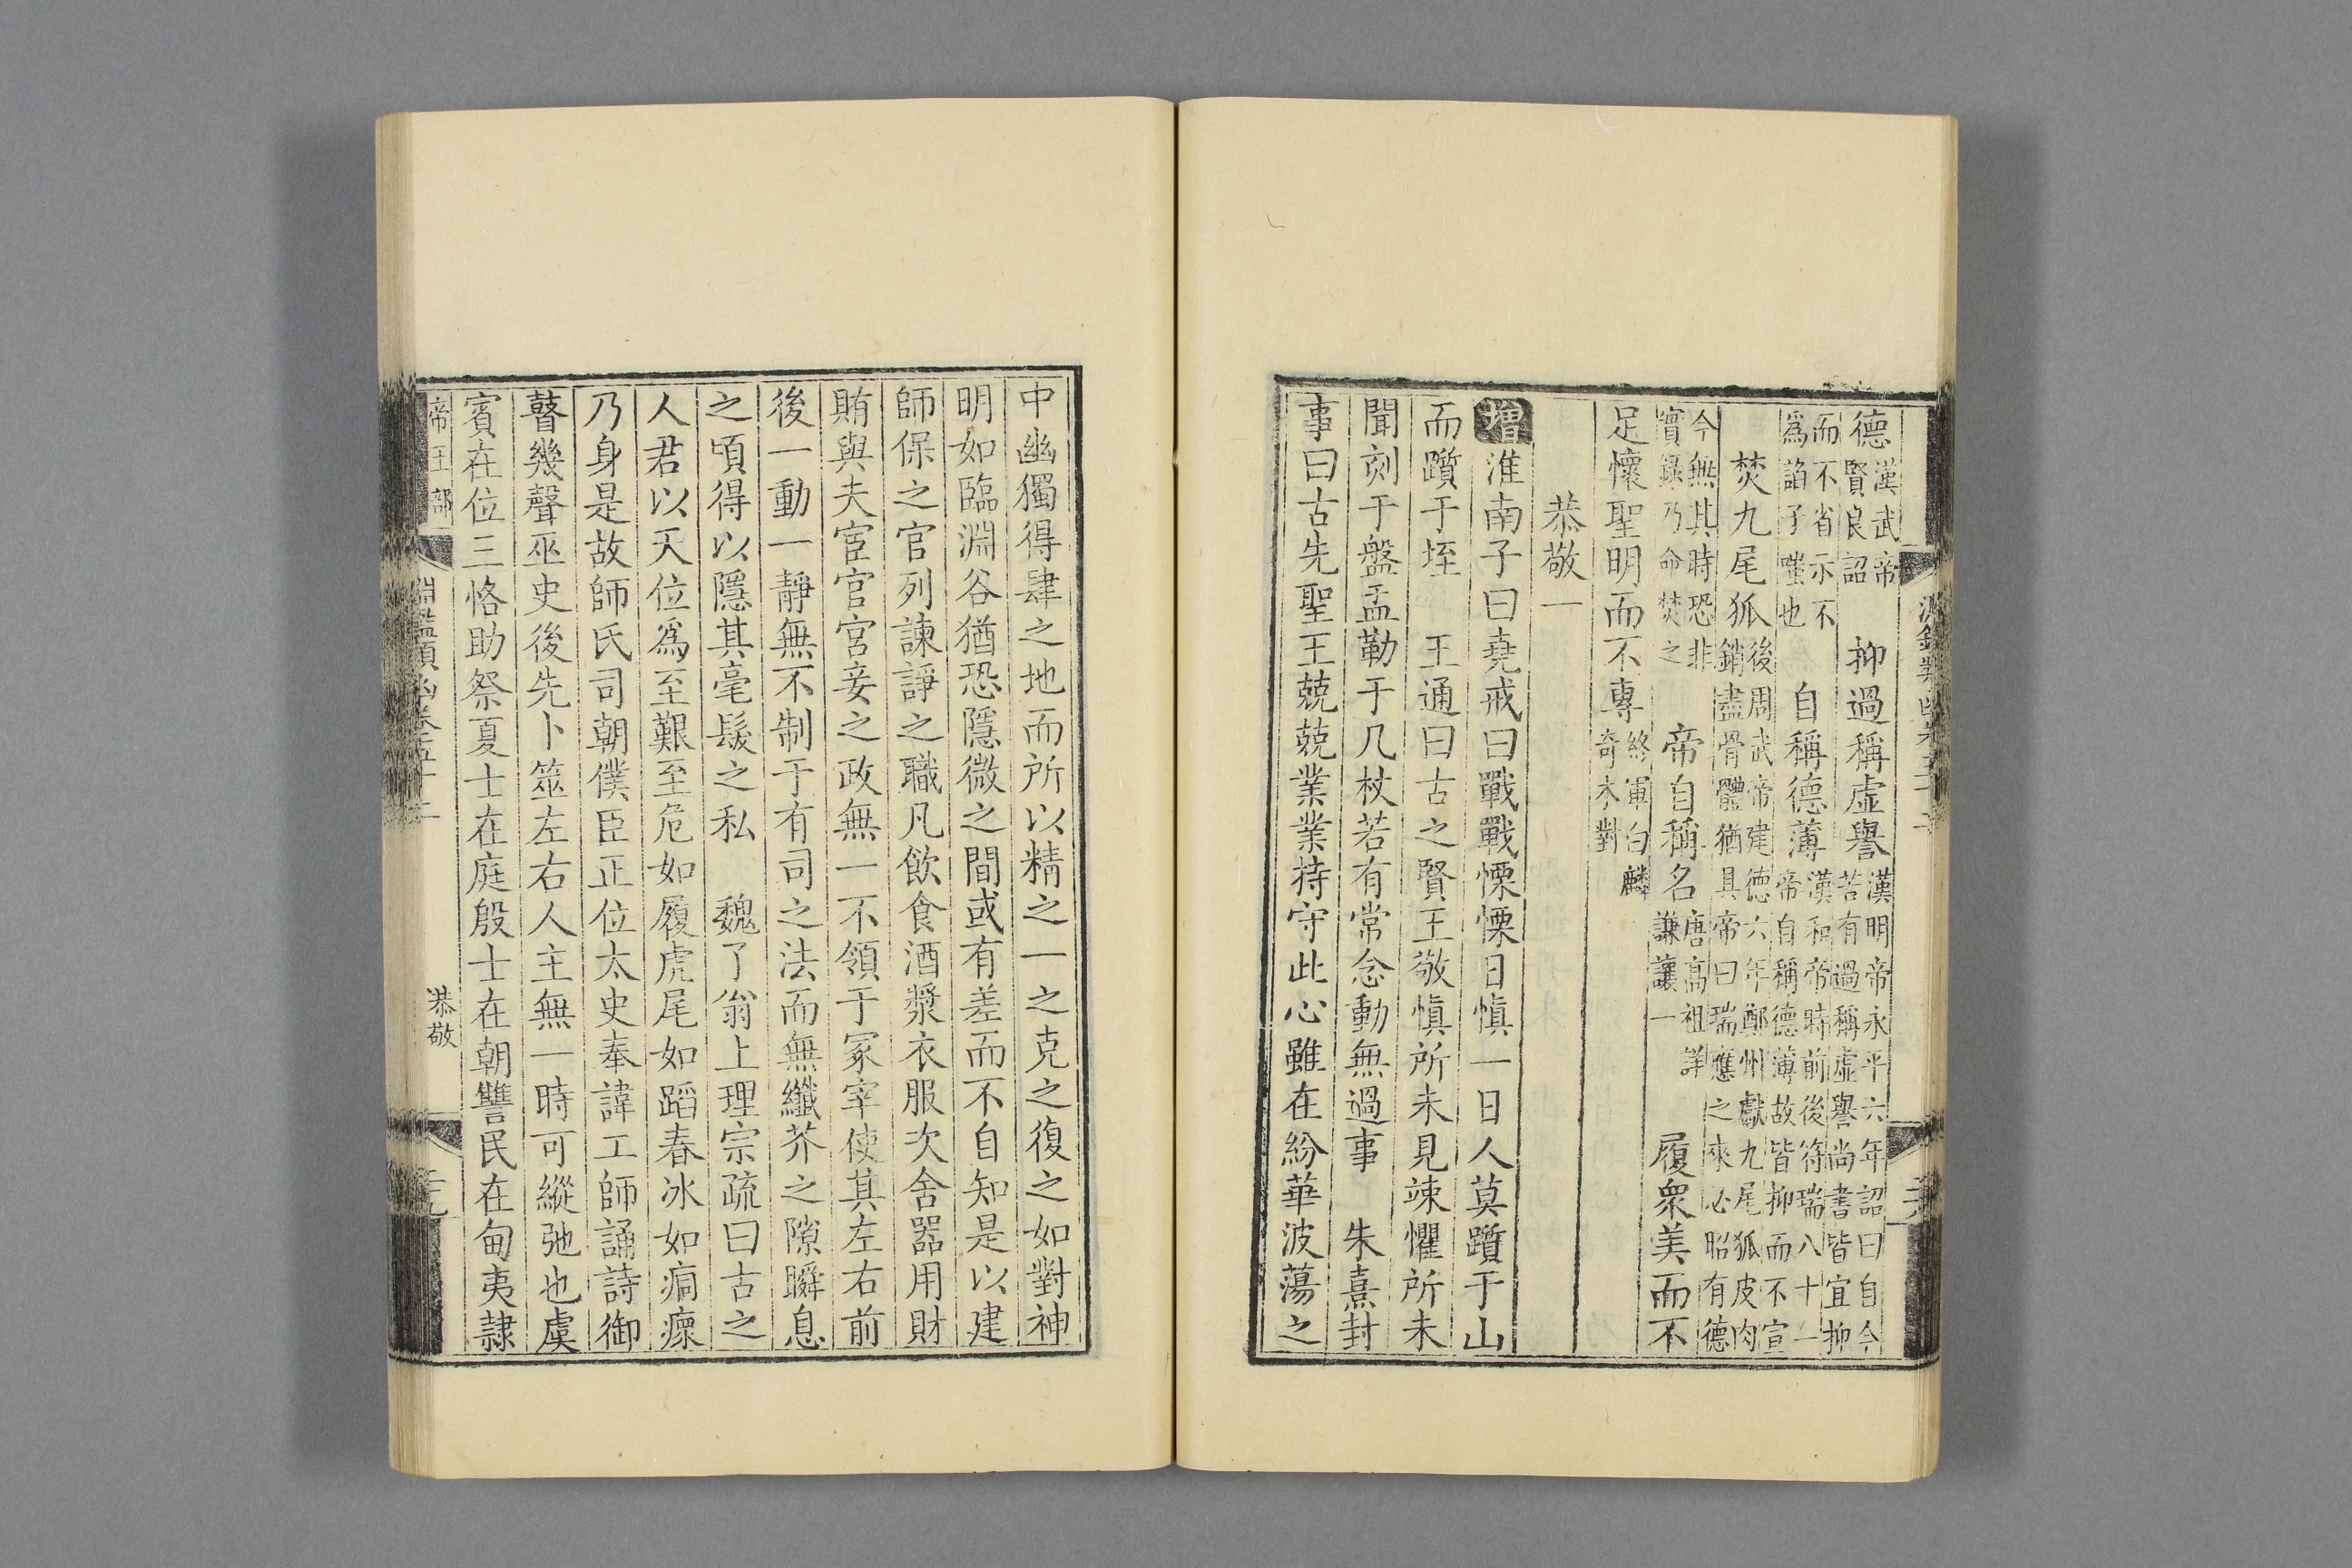 德漢武帝賢良詔　抑過稱虛譽漢明帝永平六年詔曰自今若有過稱虛譽尚書皆宜抑
而不省示不爲諂子嗤也　自稱德薄漢和帝時前後符瑞八十一帝自稱德薄故皆抑而不宣
焚九尾狐後周武帝建德六年鄭州獻九尾狐皮肉銷盡骨體猶具帝曰瑞應之來必昭有德
今無其時恐非實錄乃命焚之　帝自稱名唐高祖詳謙讓一　履衆美而不
足懷聖明而不專終軍白麟奇木對
恭敬一
增淮南子曰堯戒曰戰戰慄慄日愼一日人莫躓于山
而躓于垤　王通曰古之賢王敬愼所未見竦懼所未
聞刻于盤盂勒于几杖若有常念動無過事　朱熹封
事曰古先聖王兢兢業業持守此心雖在紛華波蕩之
中幽獨得肆之地而所以精之一之克之復之如對神
明如臨淵谷猶恐隱微之間或有差而不自知是以建
師保之官列諫諍之職凡飲食酒漿衣服次舍器用財
賄與夫宦官宮妾之政無一不領于冢宰使其左右前
後一動一靜無不制于有司之法而無纖芥之隙瞬息
之頃得以隱其毫髮之私　魏了翁上理宗疏曰古之
人君以天位爲至艱至危如履虎尾如蹈春冰如痌瘝
乃身是故師氏司朝僕臣正位太史奉諱工師誦詩御
瞽幾聲巫史後先卜筮左右人主無一時可縱弛也虞
賓在位三恪助祭夏士在庭殷士在朝讐民在甸夷隷
帝王部　淵鑑類函卷五十二　恭敬